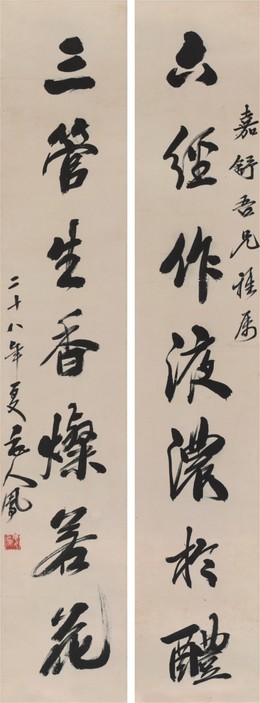 嘉舒吾兄雅属
六經作液濃於醴
三管生香燦若花
二十八年夏袁人鳳